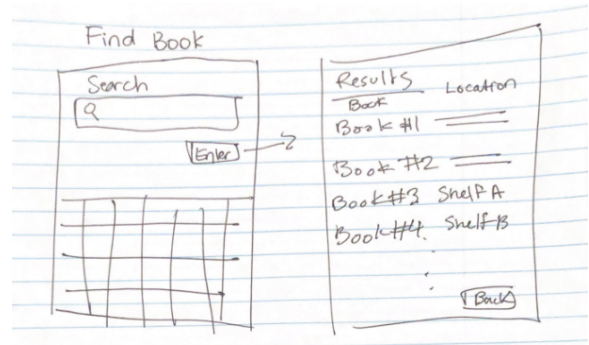 Find Book
Search
Enter
Results
Book Location
Book #1
Book #2
Book #3 Shelf A
Book #4. Shelf B
Back